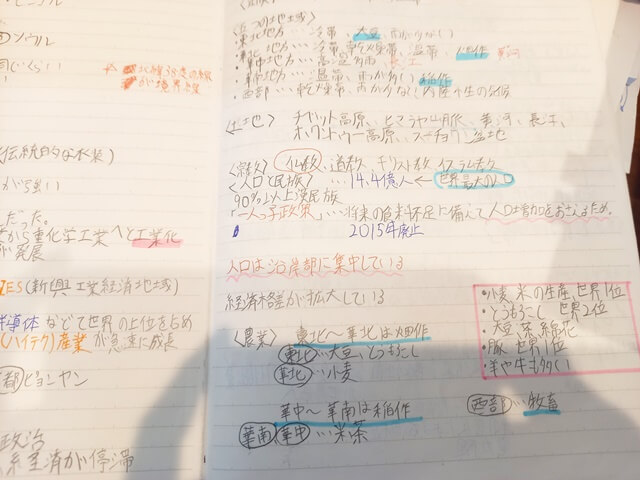 ソウル
北緯38度の線
が境界線
伝統的な衣装)
が強い
だった。
から重化学工業へと工業化
が発展
ZES(新興工業経済地域)
半導体などで世界の上位を占め
(ハイテク)産業が急速に成長
都)ピョンヤン
政治
経済が停滞
・東北地方…冷帯、大豆、雨が少ない
・華北地方…冷帯、乾燥帯、温帯、畑作
・華中地方…高温多雨 長江
・華南地方…温帯、雨が多い 稲作
・西部…乾燥帯、雨が少なく内陸
〈土地〉 チベット高原、ヒマラヤ山脈、黄河、長江、
高原、盆地
〈経教〉仏教、道教、キリスト教、イスラム教
〈人口と民族〉…14.4億人←世界最大の人口
90%以上漢民族
「一人っ子政策」…将来の食料不足に備えて人口増加をおさえるため。
2015年廃止
人口は沿岸部に集中している
経済格差が拡大している
〈農業〉 東北〜華北は畑作
東北…大豆、とうもろこし
華北…小麦
華中〜華南は稲作
華南 華中…米、茶
・小麦、米の生産 世界1位
・とうもろこし 世界2位
・大豆、茶、綿花
・豚 世界1位
・羊や牛も多い
西部…牧畜